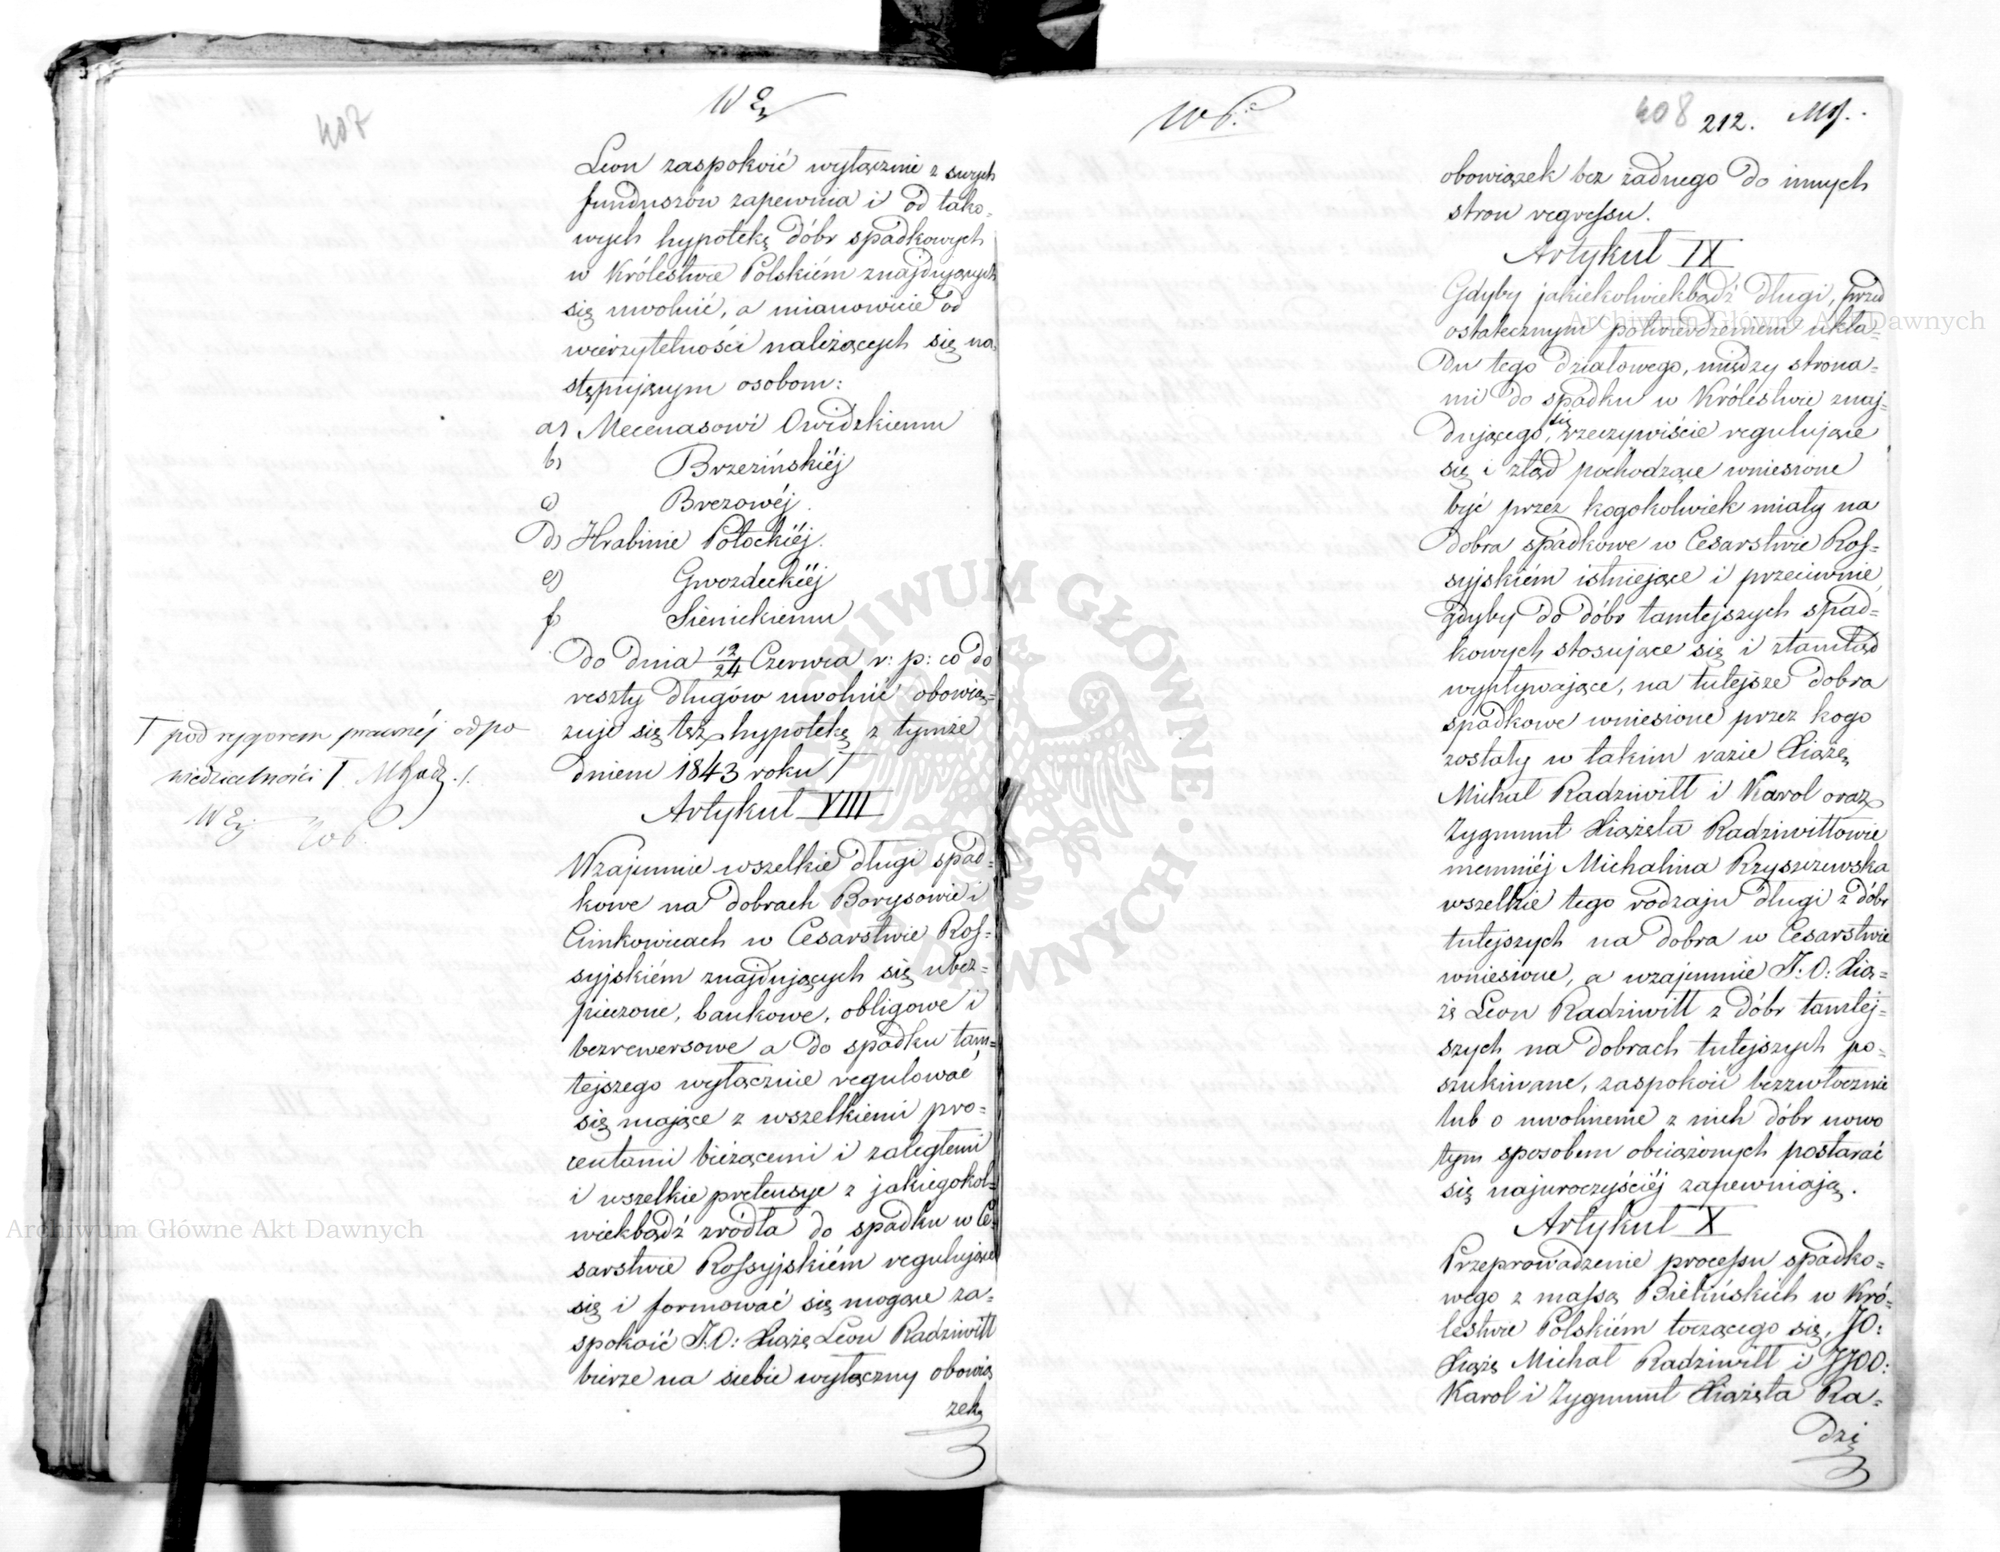 407
Leon zaspokoić wyłącznie z swych
funduszów zapewnia i od tako-
wych hypotekę dóbr spadkowych
w Królestwie Polskiém znajdujących
się uwolnić, a mianowicie od
wierzytelności należących się na-
stępującym osobom:
a) Mecenasowi Owidzkiemu
b) Brzezińskiéj
c) Brezowéj.
d) Hrabinie Potockiéj.
e) Gwozdeckiéj
f) Sienickiemu
do dnia 12/24 Czerwca r: p: co do
reszty długów uwolnić obowią-
zuje się też hypotekę z tymże
dniem 1843 roku T
T pod rygorem prawnéj odpo
wiedzialności T.
Artykuł VIII
Wzajemnie wszelkie długi spad-
kowe na dobrach Borysowie i
Cimkowicach w Cesarstwie Ros-
syjskiém znajdujących się ubez-
pieczone, bankowe, obligowe i
bezrewersowe a do spadku tam-
tejszego wyłącznie regulować
się mające z wszelkiemi pro-
centami bieżącemi i zaległemi
i wszelkie pretensye z jakiegokol-
wiekbądź zródła do spadku w Ce-
sarstwie Rossyjskiém regulujące
się i formować się mogące za-
spokoić J.O: Xiąże Leon Radziwiłł
bierze na siebie wyłączny obowią
zek
408 212.
obowiązek bez żadnego do innych
stron regressu.
Artykuł IX
Gdyby jakiekolwiekbądź długi, przed
ostatecznym potwierdzeniem ukła-
du tego działowego, między strona-
mi do spadku w Królestwie znaj-
dującego się, rzeczywiście regulujące
się i ztąd pochodzące wniesione
być przez kogokolwiek miały na
dobra spadkowe w Cesarstwie Ros-
syjskiém istniejące i przeciwnie
gdyby do dóbr tamtejszych spad-
kowych stosujące się i ztamtąd
wypływające, na tutejsze dobra
spadkowe wniesione przez kogo
zostały w takim razie Xiąże
Michał Radziwiłł i Karol oraz
Zygmunt Xiążęta Radziwiłłowie
niemniéj Michalina Rzyszczewska
wszelkie tego rodzaju długi z dóbr
tutejszych na dobra w Cesarstwie
wniesione, a wzajemnie J.O: Xią-
żę Leon Radziwiłł z dóbr tamtej-
szych na dobrach tutejszych po-
szukiwane, zaspokoić bezzwłocznie
lub o uwolnienie z nich dóbr nowo
tym sposobem obciążonych postarać
się najuroczyściéj zapewniają.
Artykuł X
Przeprowadzenie processu spadko-
wego z massą Bielińskich w Kró-
lestwie Polskiém toczącego się, JO:
Xiąże Michał Radziwiłł i JJOO:
Karol i Zygmunt Xiążęta Ra-
dzi
Archiwum Główne Akt Dawnych
Archiwum Główne Akt Dawnych
ARCHIWUM GŁÓWNE AKT DAWNYCH